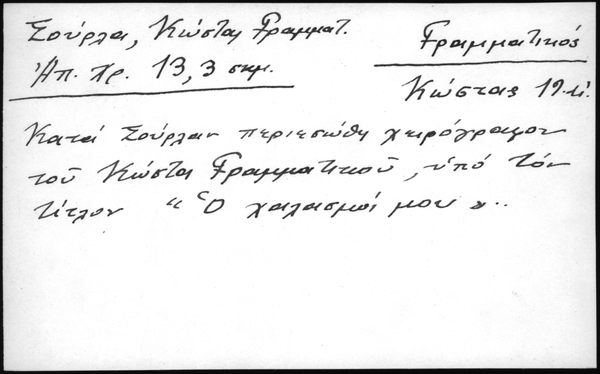 Σούρλα, Κώστα Γραμματ.
Ἠπ. Χρ. 13, 3 σημ.
Γραμματικός
Κώστας 19.
Κατά Σούρλαν περιεσώθη χειρόγραφον
τοῦ Κώστα Γραμματικοῦ, ὑπό τόν
τίτλον "Ὁ χαλασμός μου"..